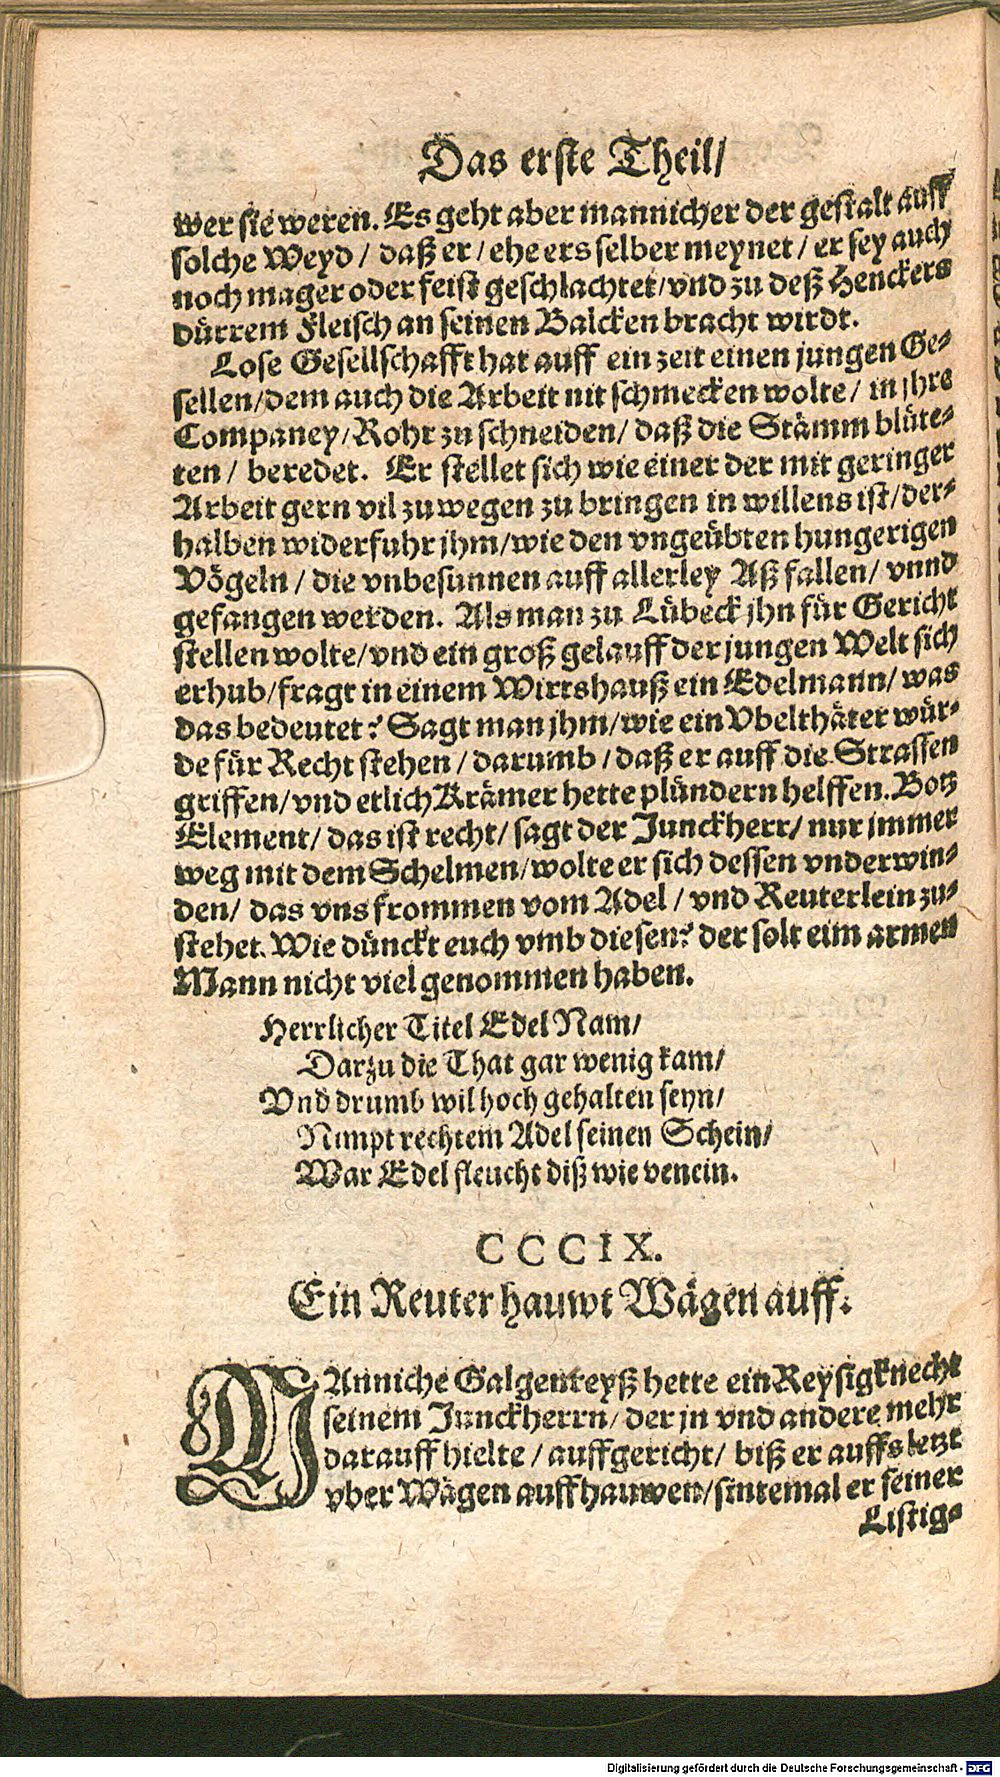 Das erste Theil/
wer sie weren. Es geht aber mannicher der gestalt auff
solche Weyd / daß er / ehe ers selber meynet / er sey auch
noch mager oder feist geschlachtet / vnd zu deß Henckers
dürrem Fleisch an seinen Balcken bracht wirdt.
Lose Gesellschafft hat auff ein zeit einen jungen Ge-
sellen/dem auch die Arbeit nit schmecken wolte/ in jhre
Companey/Rohr zu schneiden/ daß die Stämm blüte-
ten / beredet. Er stellet sich wie einer der mit geringer
Arbeit gern vil zuwegen zu bringen in willens ist/der-
halben widerfuhr jhm/wie den vngeübten hungerigen
Vögeln / die vnbesunnen auff allerley Aß fallen/ vnnd
gefangen werden. Als man zu Lübeck jhn für Gericht
stellen wolte/vnd ein groß gelauff der jungen Welt sich
erhub/fragt in einem Wirtshauß ein Edelmann/ was
das bedeutet? Sagt man jhm/wie ein Vbelthäter wür-
de für Recht stehen / darumb / daß er auff die Strassen
griffen/vnd etlich Krämer hette plündern helffen. Botz
Element/ das ist recht/ sagt der Junckherr/ nur jmmer
weg mit dem Schelmen/wolte er sich dessen vnderwin-
den/ das vns frommen vom Adel / vnd Reuterlein zu-
stehet. Wie dünckt euch vmb diesen? der solt eim armen
Mann nicht viel genommen haben.
Herrlicher Titel Edel Nam/
Darzu die That gar wenig kam/
Vnd drumb wil hoch gehalten seyn/
Nimpt rechtem Adel seinen Schein/
War Edel fleucht diß wie venein.
CCCIX.
Ein Reuter hauwt Wägen auff.
MAnniche Galgenreyß hette ein Reysigknecht
seinem Junckherrn/ der jn vnd andere mehr
darauff hielte / auffgericht/ biß er auffs letzt
vber Wägen auffhauwen/sintemal er seiner
Listig-
Digitalisierung gefördert durch die Deutsche Forschungsgemeinschaft - DFG